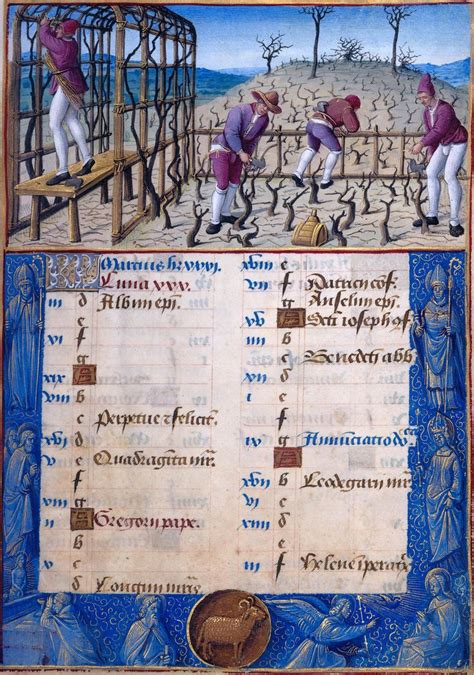 KL Marcius hr. xxxi.
Luna xxx.
iii d Albini epi.
e
f
g
xix A
b
c Perpetue & felicit.
d
e Quadragita mr.
f
g
ii A Gregorii pape.
b
c
d Longini mris.
xviii e
vii f Patricii cof.
g Anselmi epi.
xv A Scti ioseph cof.
iiii b
c Benedicti abb.
xii d
i e
f
ix g Annunciatio do
A
xvii b Leodegarii mr.
vi c
xiiii d
e
iii f Helene iperatr.